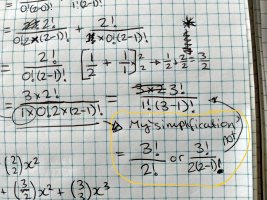 0!(2-0)! 1!(2-1)!
= 2! / 0!2×(2-1)! + 2! / 1×0!(2-1)!
= 2! / 0!(2-1)! [1/2 + 1/1] ×2 ×2 → 1/2 + 2/2 = 3/2
= 3×2! / 1×0!2×(2-1)! = 3×2 3! / 1!(3-1)!
→ "My simplification"
= 3! / 2! or 3! / 2(2-1)!
not
(2 2)x²
+ (3 2)x² + (3 3)x³